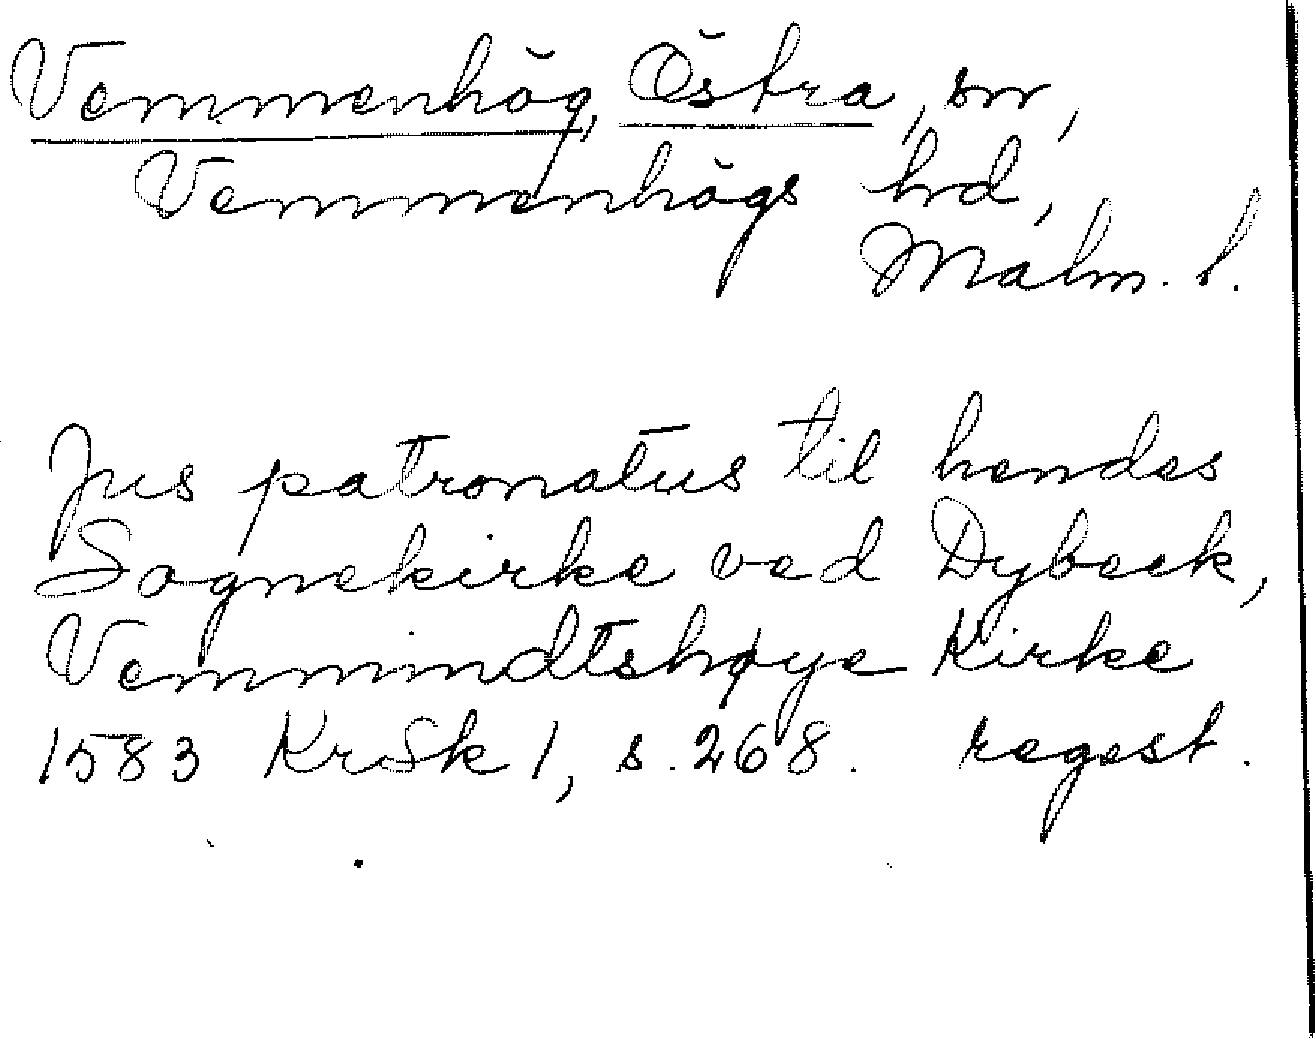 Vemmenhög, Östra, sn,
Vemmenhögs hd,
Malm. l.
Jus patronatus til hendes
Sognekirke ved Dybeck,
Vemmindtshøye Kirke
1583 KrSk 1, s. 268. regest.